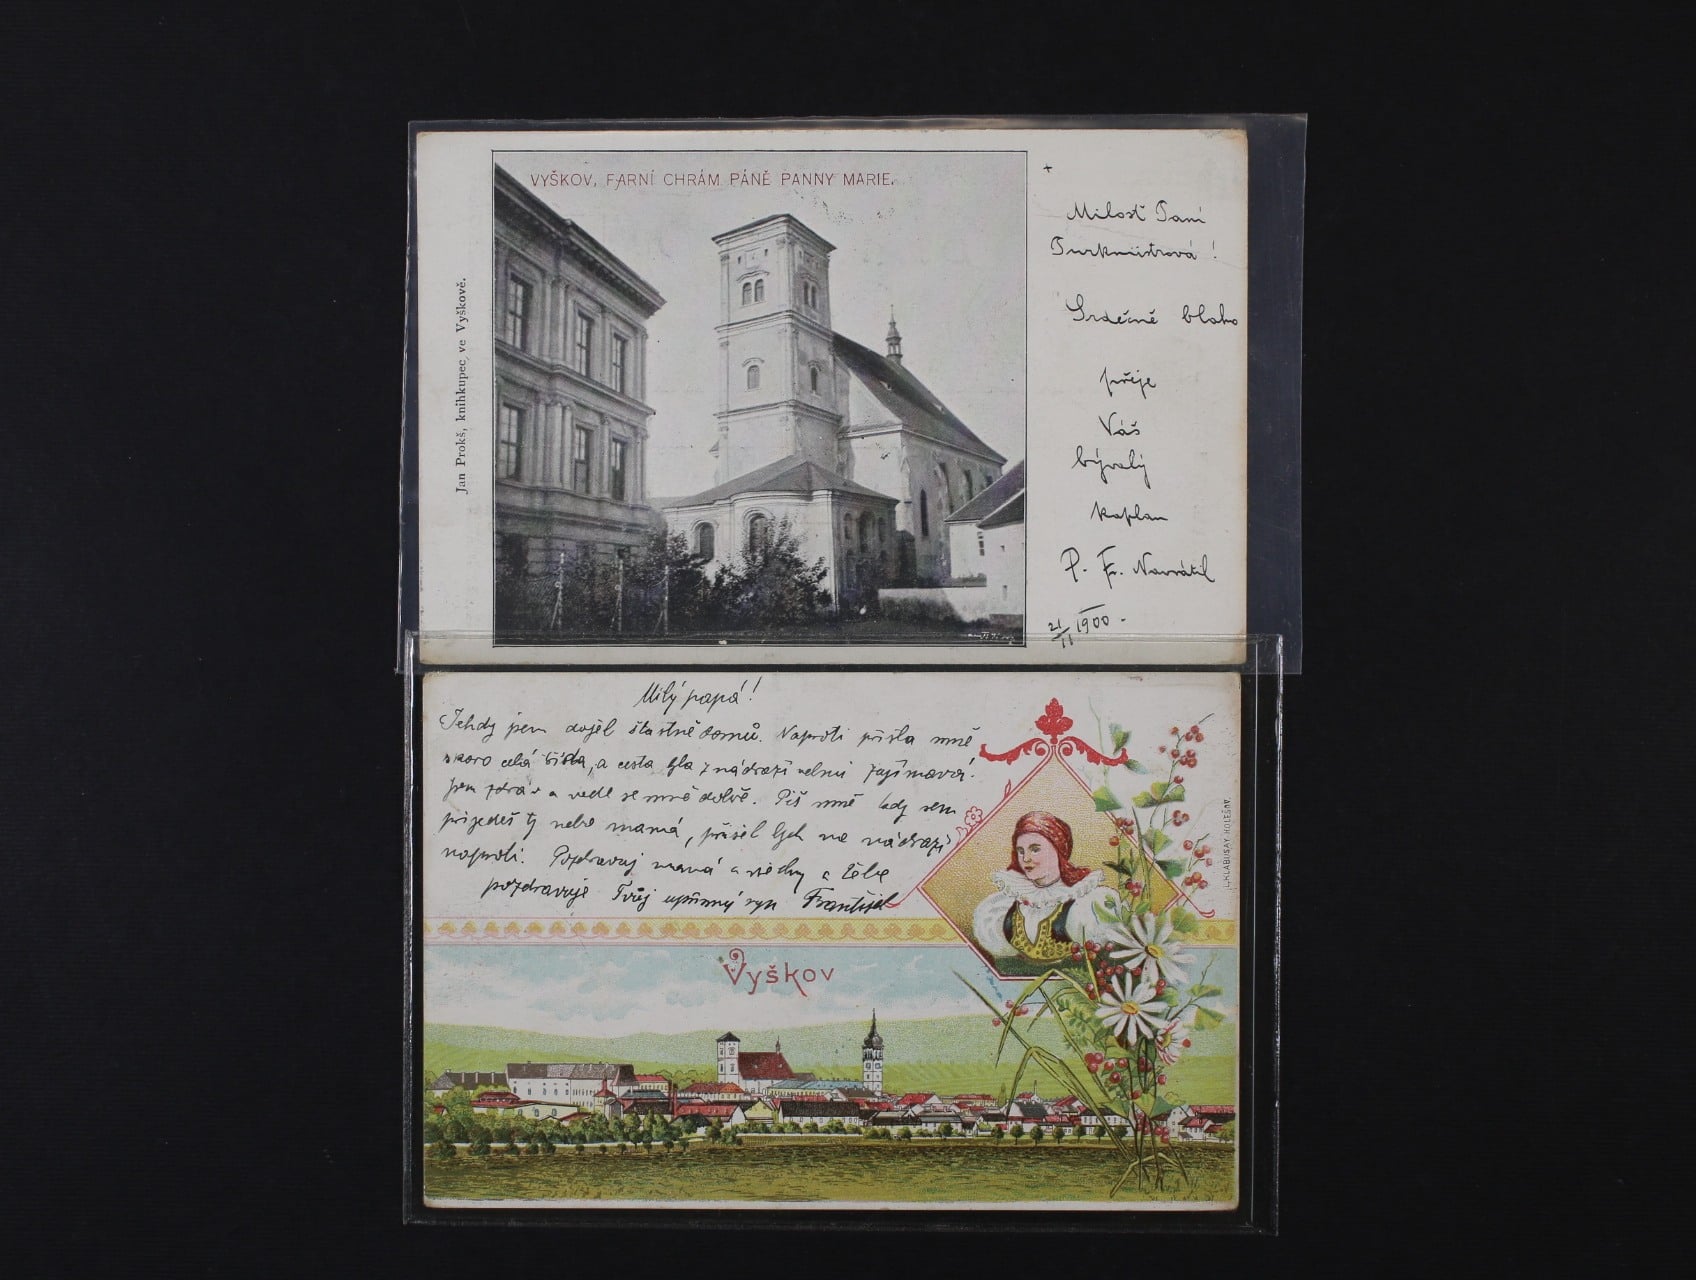 VYŠKOV, FARNÍ CHRÁM PÁNĚ PANNY MARIE.
Jan Prokš, knihkupec, ve Vyškově.
Milosť Paní
Purkmistrová!
Srdečné blaho
přeje
Váš
bývalý
kaplan
P. Fr. Navrátil
21/II 1900.
Milý papá!
Tehdy jsem dojel šťastně domů. Naproti přišla mně
skoro celá třída, a cesta z nádraží velmi zajímavá.
jsem zdráv a vede se mně dobře. Piš mně kdy sem
přijedeš ty nebo mamá, přišel bych na nádraží
naproti. Pozdravuj mamá a všechny a Tebe
pozdravuje Tvůj upřímný syn František
Vyškov
L. KLABUSAY, HOLEŠOV.